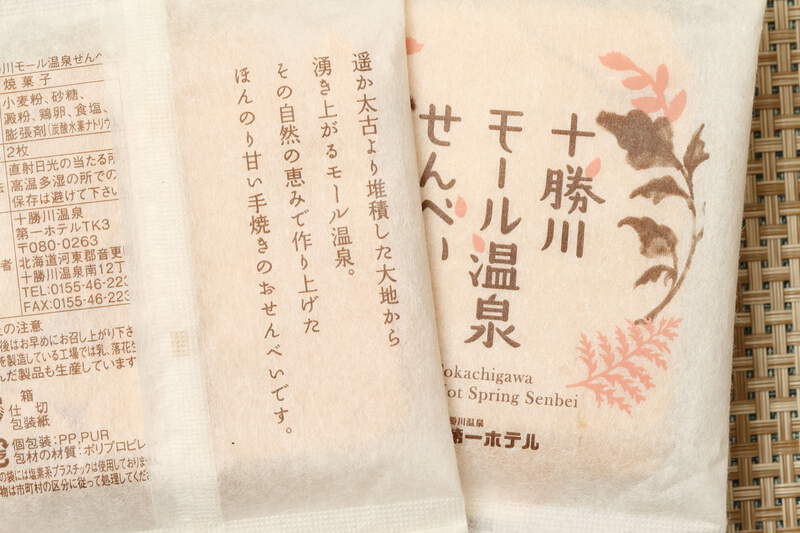 川モール温泉せんべ
焼菓子
小麦粉、砂糖、
澱粉、鶏卵、食塩、
膨張剤(炭酸水素ナトリウ
2枚
直射日光の当たる所
高温多湿の所での
保存は避けて下さい
十勝川温泉
第一ホテルTK3
〒080-0263
者
北海道河東郡音更
十勝川温泉南12丁
TEL:0155-46-223
FAX:0155-46-223
上の注意
後はお早めにお召し上がり下さ
を製造している工場では乳、落花生
んだ製品も生産しています
箱
仕切
包装紙
個包装:PP,PUR
包材の材質:ポリプロピレ
の袋には塩素系プラスチックは使用しておりませ
物は市町村の区分に従って処理してくださ
遥か太古より堆積した大地から
湧き上がるモール温泉。
その自然の恵みで作り上げた
ほんのり甘い手焼きのおせんべいです。
十勝川
モール温泉
せんべー
okachigawa
ot Spring Senbei
勝川温泉
第一ホテル